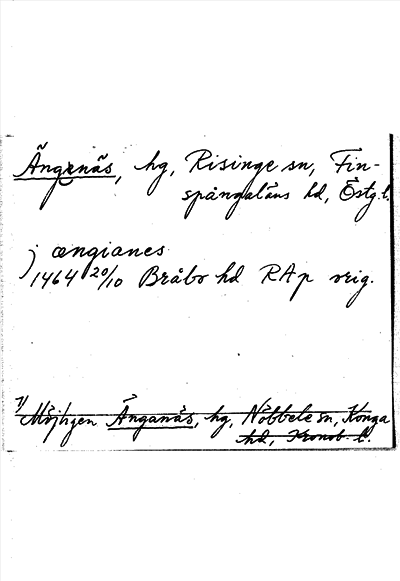 Ängenäs, hg, Risinge sn, Fin-
spångaläns hd, Östg. l.
j ængianes
1464 20/10 Bråbo hd RAp orig.
1) Möjligen Änganäs, hg, Nöbbele sn, Konga
hd, Kronob. l.